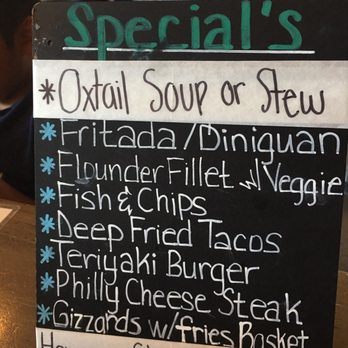 Special's
*Oxtail Soup or Stew
*Fritada/Diniguan
*Flounder Fillet w/Veggie
*Fish & Chips
*Deep Fried Tacos
*Teriyaki Burger
*Philly Cheese Steak
*Gizzards w/fries Basket